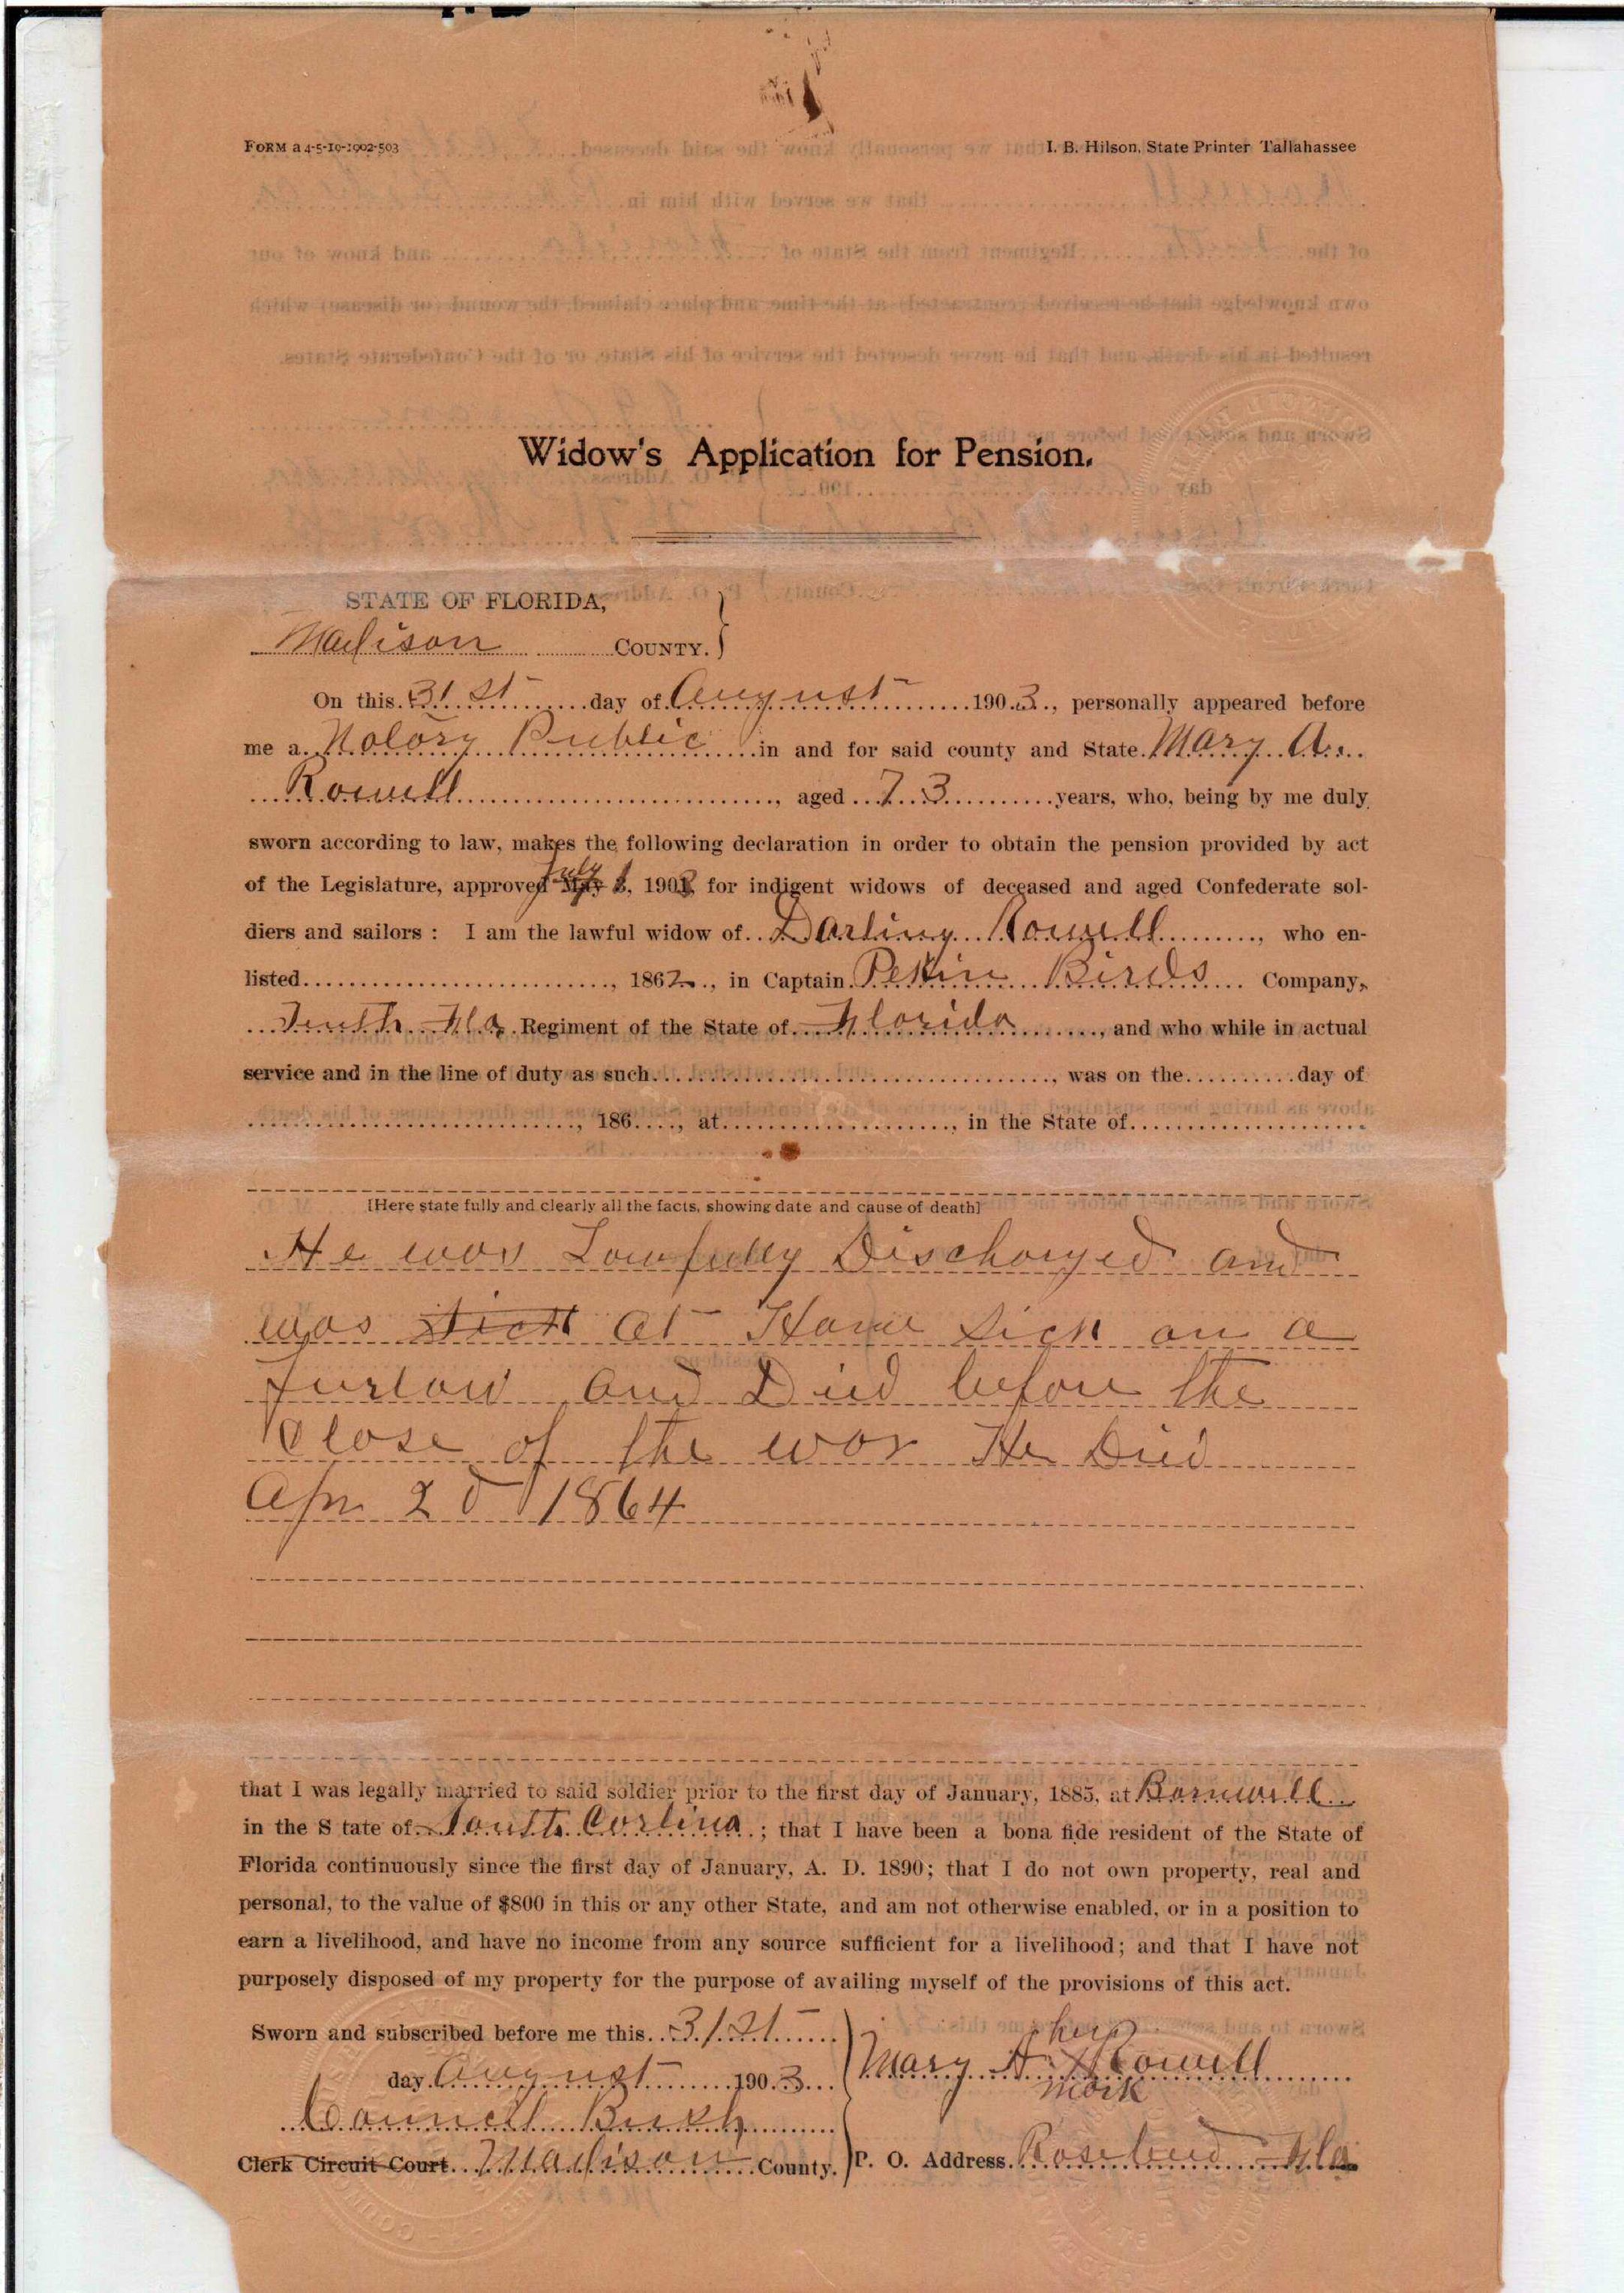 FORM a 4-5-19-1902-503
I. B. Hilson, State Printer Tallahassee
Widow's Application for Pension.
STATE OF FLORIDA,
Madison COUNTY.
On this 31st day of August 1903, personally appeared before
me a Notory Public in and for said county and State Mary A.
Rowell, aged 73 years, who, being by me duly
sworn according to law, makes the following declaration in order to obtain the pension provided by act
of the Legislature, approved July 1, 1903, for indigent widows of deceased and aged Confederate sol-
diers and sailors : I am the lawful widow of Darling Rowell, who en-
listed, 1862, in Captain Pekin Birds Company,
Tenth Fla Regiment of the State of Florida, and who while in actual
service and in the line of duty as such, was on the day of
, 186 , at , in the State of
[Here state fully and clearly all the facts, showing date and cause of death]
He was Lawfully Discharged and
was sick at Home Sick on a
furlow and Died before the
Close of the war He Died
Apr 2d 1864
that I was legally married to said soldier prior to the first day of January, 1885, at Barnwell
in the State of South Corlina; that I have been a bona fide resident of the State of
Florida continuously since the first day of January, A. D. 1890; that I do not own property, real and
personal, to the value of $800 in this or any other State, and am not otherwise enabled, or in a position to
earn a livelihood, and have no income from any source sufficient for a livelihood; and that I have not
purposely disposed of my property for the purpose of availing myself of the provisions of this act.
Sworn and subscribed before me this 31st
day August 1903
Council Bush
Clerk Circuit Court Madison County.
her
Mary A. X Rowell
mark
P. O. Address Rosebud Fla